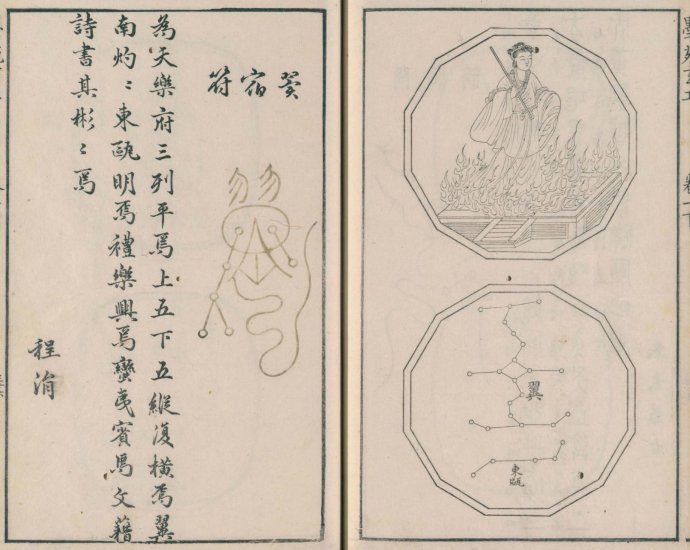 翼
東甌
翼宿符
為天樂府三列平焉上五下五縱復橫焉翼
南灼〻東甌明焉禮樂興焉蠻夷賓焉文籍
詩書其彬〻焉
程涓